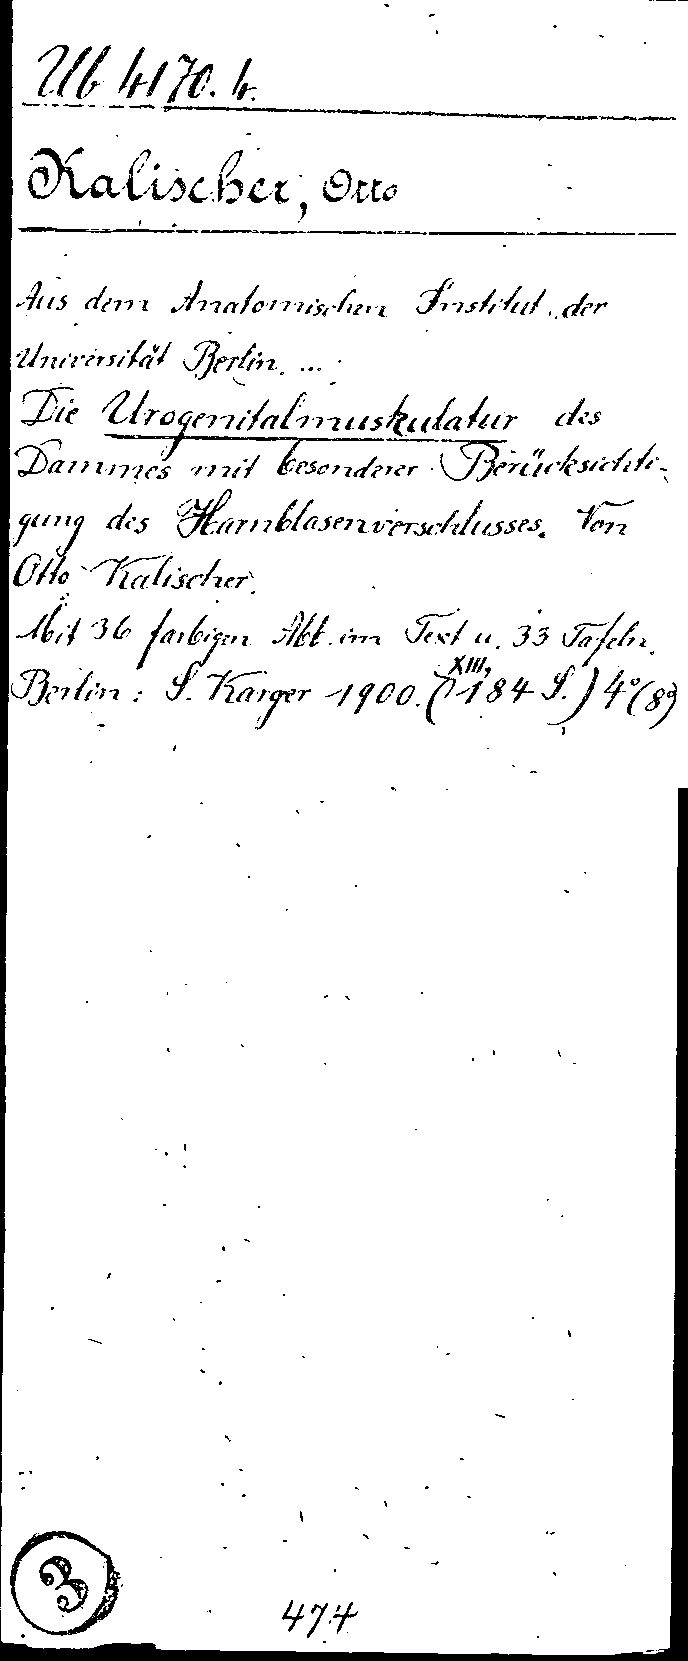 Ub 4170.4.
Kalischer, Otto
Aus dem Anatomischen Institut der
Universität Berlin. ...
Die Urogenitalmuskulatur des
Dammes mit besonderer Berücksichti-
gung des Harnblasenverschlusses. Von
Otto Kalischer.
Mit 36 farbigen Abb. im Text u. 33 Tafeln.
Berlin: S. Karger 1900. (XIII, 184 S.) 4° (8°)
3
474